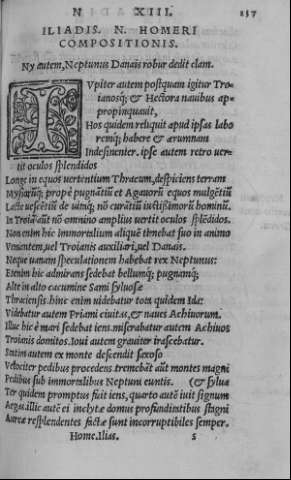 N XIII. 257
ILIADIS. N. HOMERI
COMPOSITIONIS.
Ny autem, Neptunus Danais robur dedit clam.
IVpiter autem postquam igitur Tro-
ianosq; & Hectora nauibus ap-
propinquauit,
Hos quidem reliquit apud ipsas labo
remq; habere & ærumnam
Indesinenter. ipse autem retro uer-
tit oculos splendidos
Longe in equos uertentium Thracum, despiciens terram
Mysñorūq; propè pugnātiū et Agauorū equos mulgētiū
Lacte uescētiū de uitaq; nō curātiū iustissimorū hominū.
In Troiā aūt nō omnino amplius uertit oculos splēdidos.
Non enim hic immortalium aliquē timebat suo in animo
Venientem, uel Troianis auxiliari, uel Danais.
Neque uanam speculationem habebat rex Neptunus:
Etenim hic admirans sedebat bellumq; pugnamq;
Alte in alto cacumine Sami syluosæ
Thraciensis. hinc enim uidebatur tota quidem Ida:
Videbatur autem Priami ciuitas, & naues Achiuorum.
Illuc hic è mari sedebat iens. miserabatur autem Achiuos
Troianis domitos. Ioui autem grauiter irascebatur.
Statim autem ex monte descendit saxoso
Velociter pedibus procedens. tremebāt aūt montes magni
Pedibus sub immortalibus Neptuni euntis. (& sylua
Ter quidem promptus fuit iens, quarto autē iuit signum
Aegas. illic autē ei inclytæ domus profunditatibus stagni
Aureæ resplendentes factæ sunt incorruptibiles semper.
Home. Ilias. s